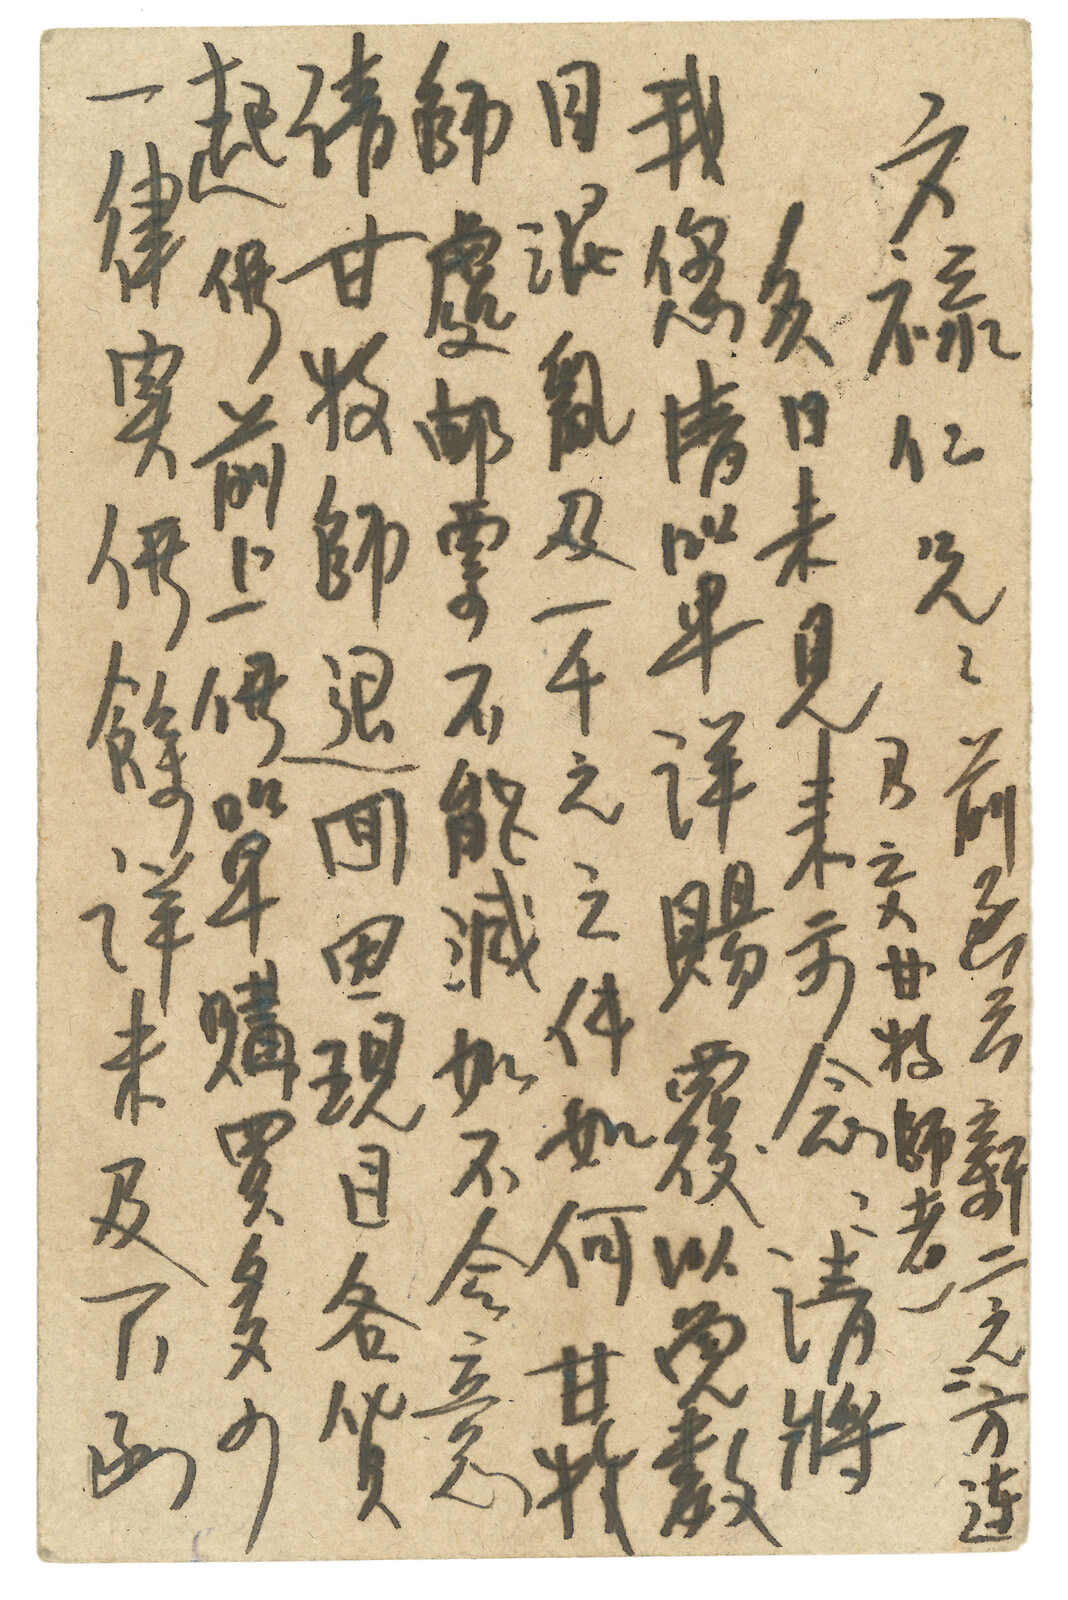 文祿仁兄：前函云新二元二方連
及交甘牧師者
多日未見來示念念請將
我您清單詳賜覆以免數
目混亂及一千元之件如何甘牧
師處郵票不能減如不合意
請甘牧師退回因現目各貨
起價前上價單購買多少
一律實價餘詳未及下函